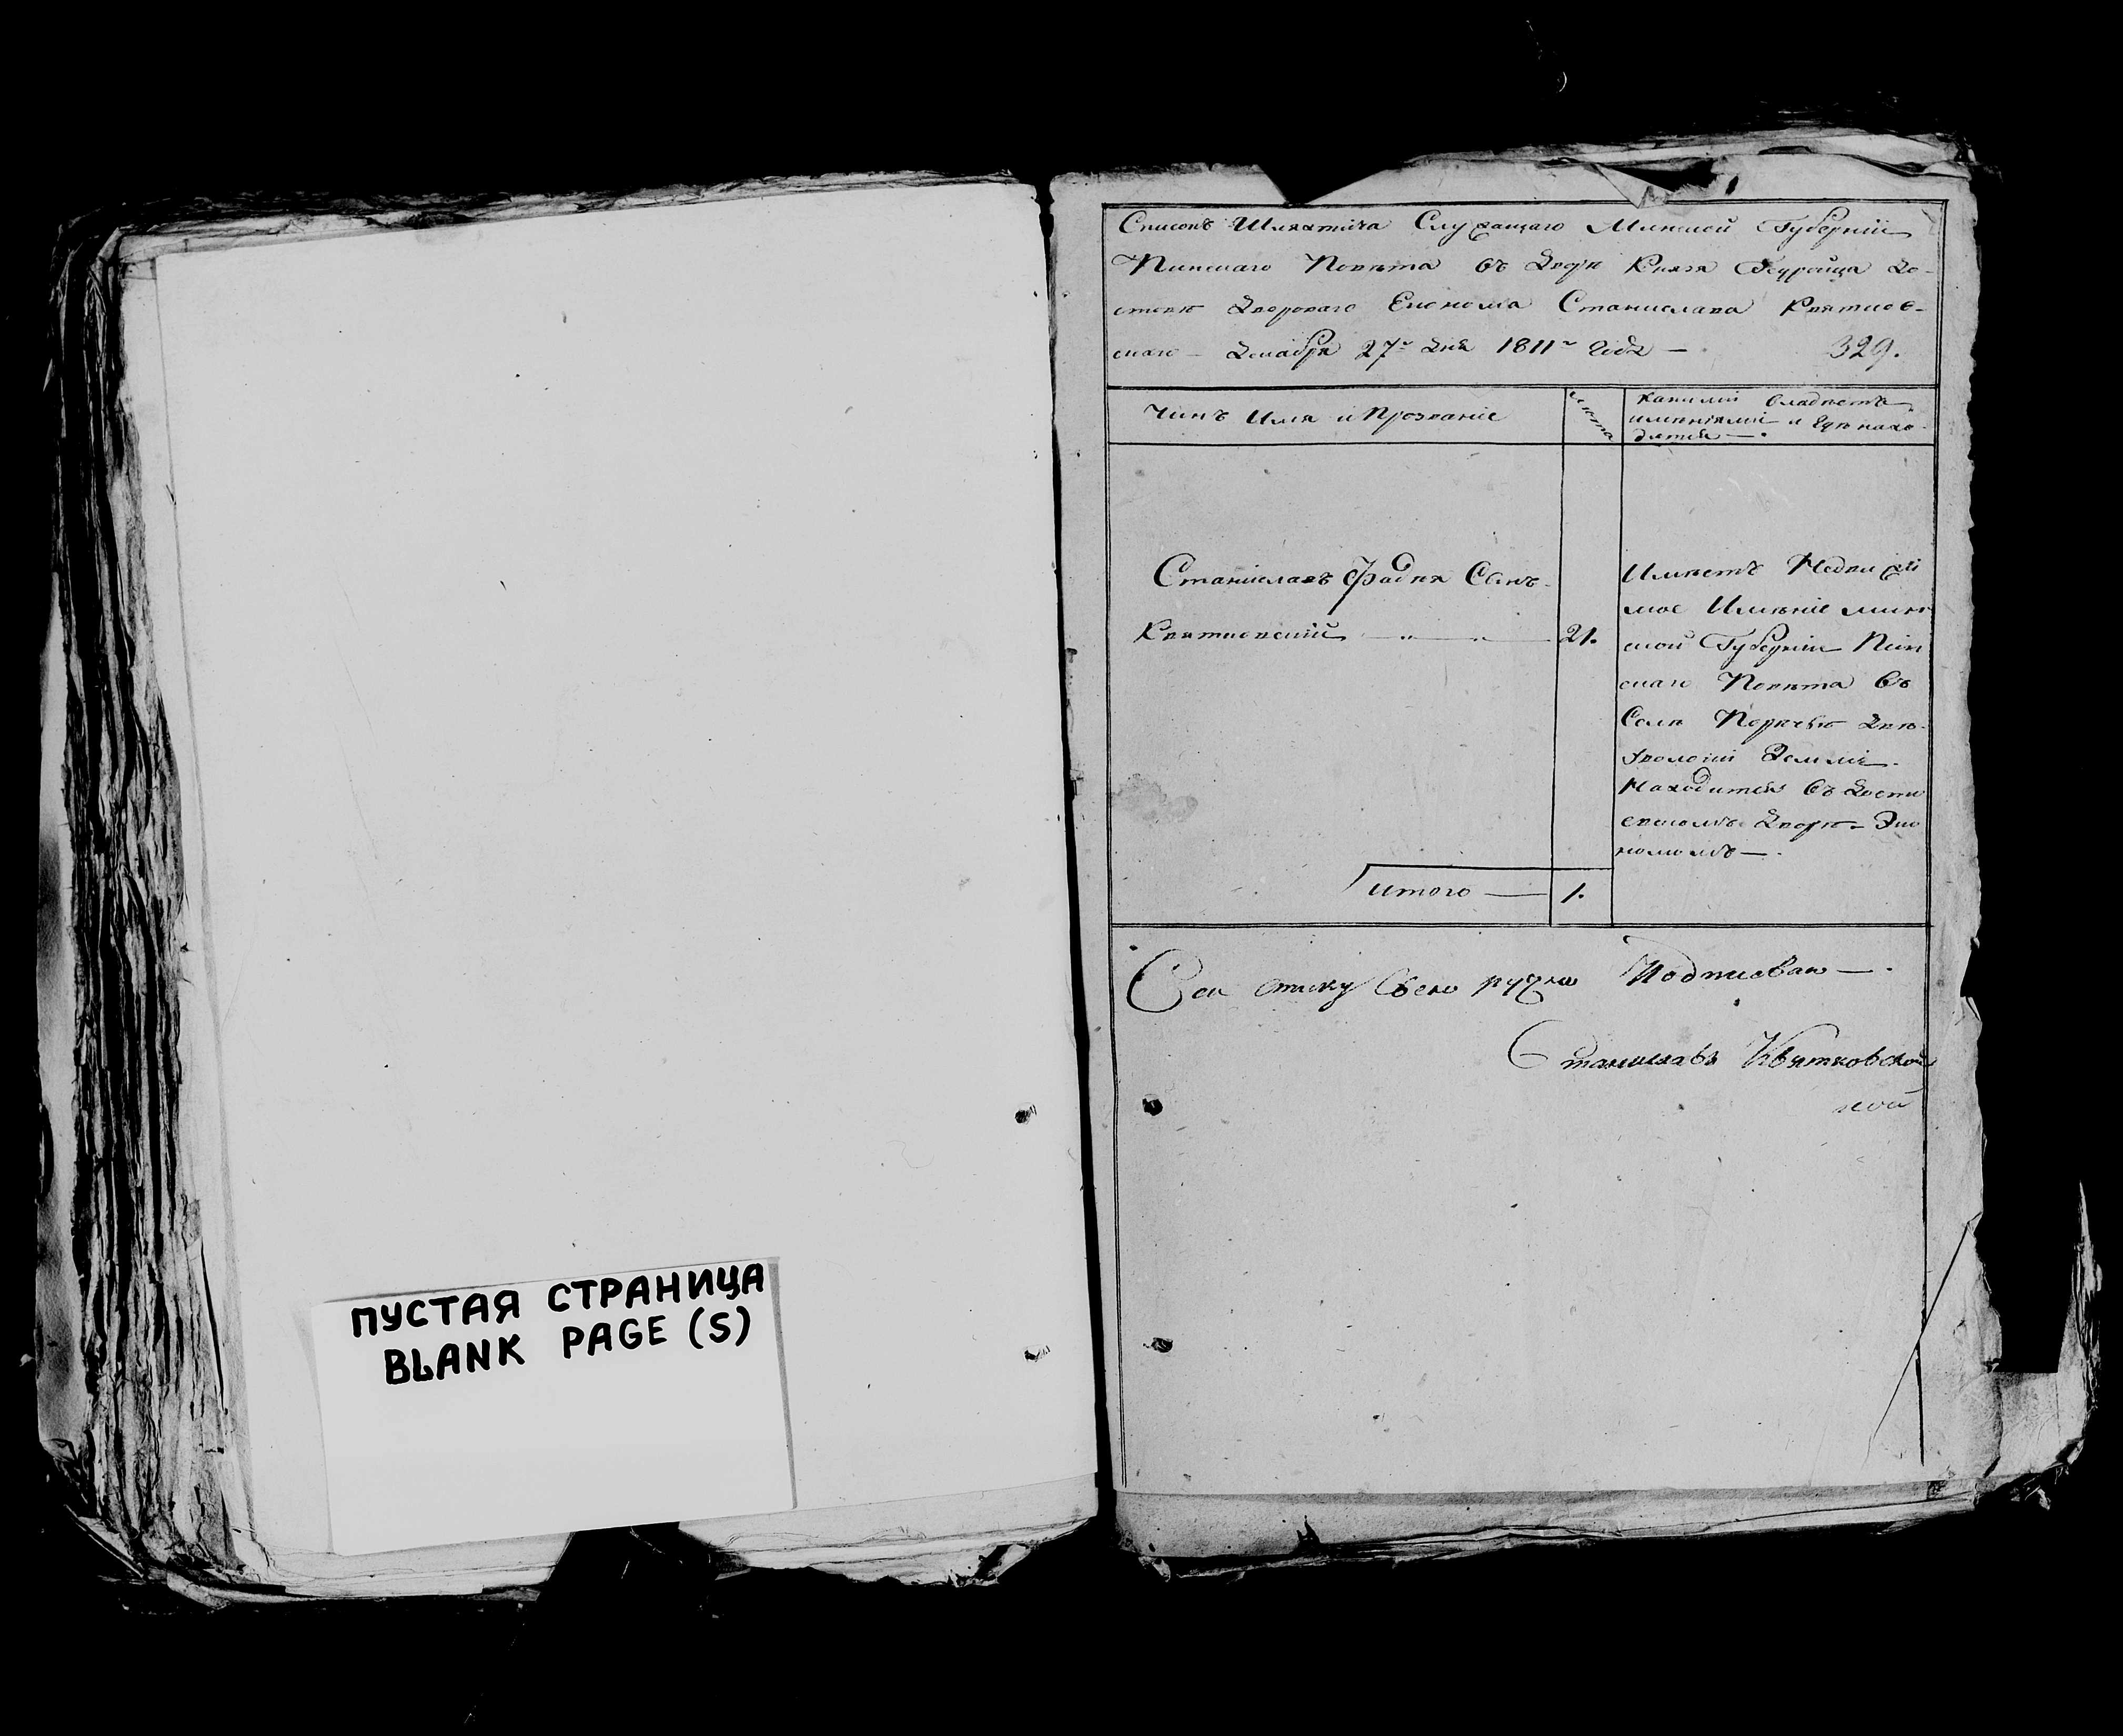 ПУСТАЯ СТРАНИЦА
BLANK PAGE (S)
Списокъ Шляхтича Служащаго Минской Губерніи
Пинскаго Повѣта въ Дворѣ Князя
Двороваго Економа Станислава Квятков-
скаго — Декабря 27го Дня 1811го Года — 329.
Чинъ Имя и Прозваніе
Лѣта
Какимы Владѣетъ
имѣніями и Гдѣ нахо-
дятся —.
Станиславъ Фадѣя Сынъ-
Квятковскій — „ — „ — 21.
Имѣетъ Недвижи
мое Имѣніе Мин
ской Губерніи Пин
скаго Повѣта Въ
Селѣ Порѣчью Двѣ-
Уволоки Земли —.
Находится Въ
Дворѣ — Эко
номомъ —.
Итого — 1.
Сею Подписоваю —.
Станиславъ Квятковской
ской